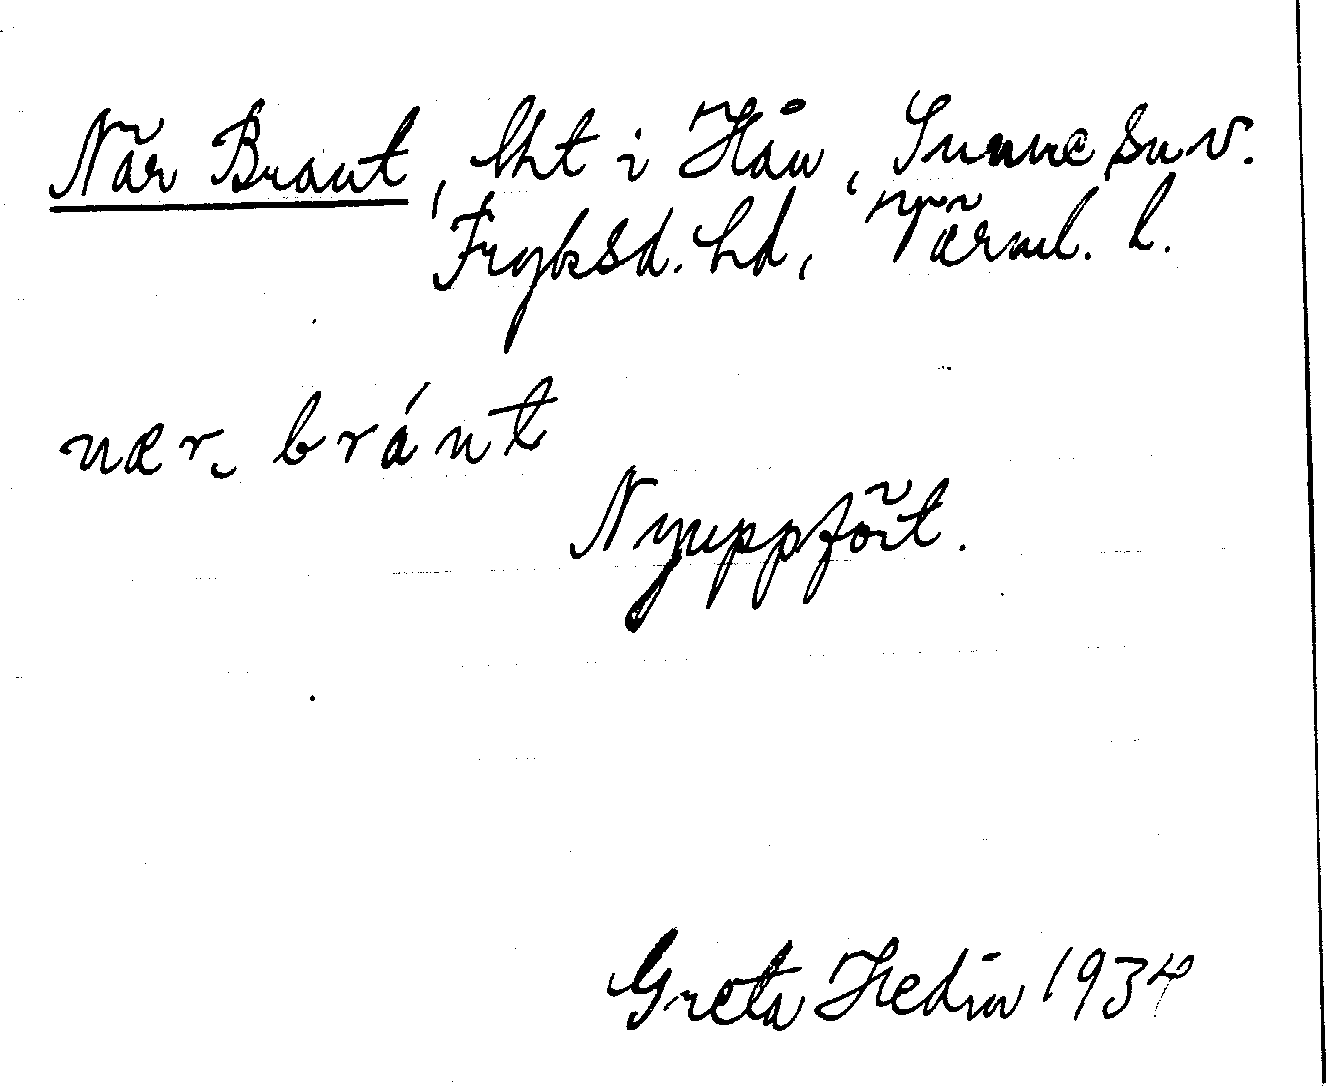 När Brant, lht i Hån, Sunne sn v.
Fryksd. hd, Värml. l.
nær. bránt
Nyuppfört.
Greta Hedin 1934